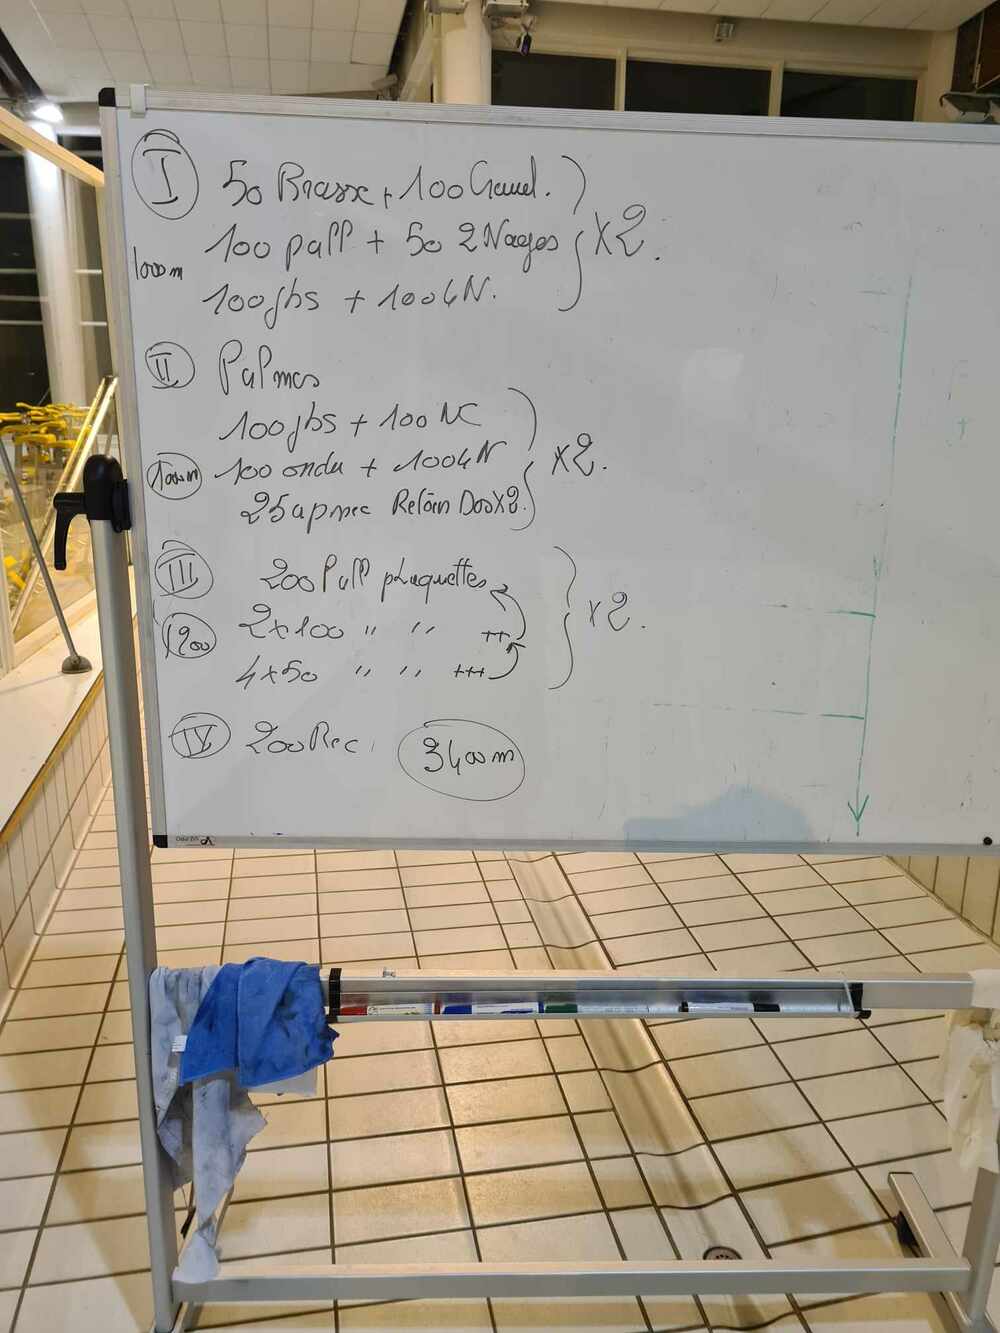 I 50 Brasse + 100 Crawl.
100 pull + 50 2 Nages x2.
1000m
100 jbs + 100 4N.
II Palmes
100 jbs + 100 NC
1000m 100 ondu + 100 4N x2.
25 apnée Retour Dos x2.
III 200 Pull plaquettes
1200 2x100 " " ++ x2.
4x50 " " +++
IV 200 Rec 3400m